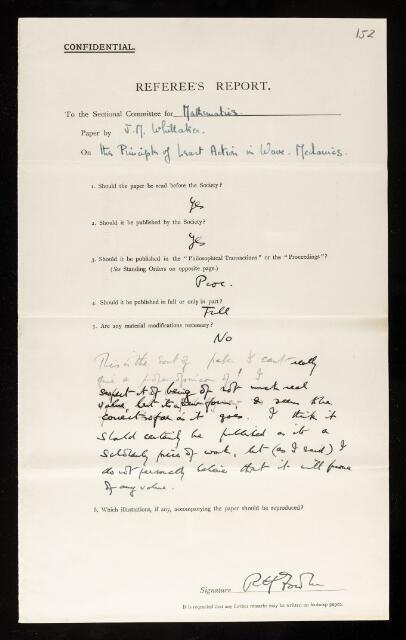 152
CONFIDENTIAL.
REFEREE'S REPORT.
To the Sectional Committee for Mathematics.
Paper by J.M. Whittaker.
On the Principle of Least Action in Wave-Mechanics.
1. Should the paper be read before the Society?
Yes
2. Should it be published by the Society?
Yes
3. Should it be published in the "Philosophical Transactions" or the "Proceedings"?
(See Standing Orders on opposite page.)
Proc.
4. Should it be published in full or only in part?
Full
5. Are any material modifications necessary?
No
This is the sort of paper I can't really
give a proper opinion of! I
suspect it of being of not much real
value, but it seems
correct so far as it goes. I think it
should certainly be published as it is a
scholarly piece of work, but (as I said) I
do not personally believe that it will prove
of any value.
6. Which illustrations, if any, accompanying the paper should be reproduced?
Signature R H Fowler
It is requested that any further remarks may be written on foolscap paper.